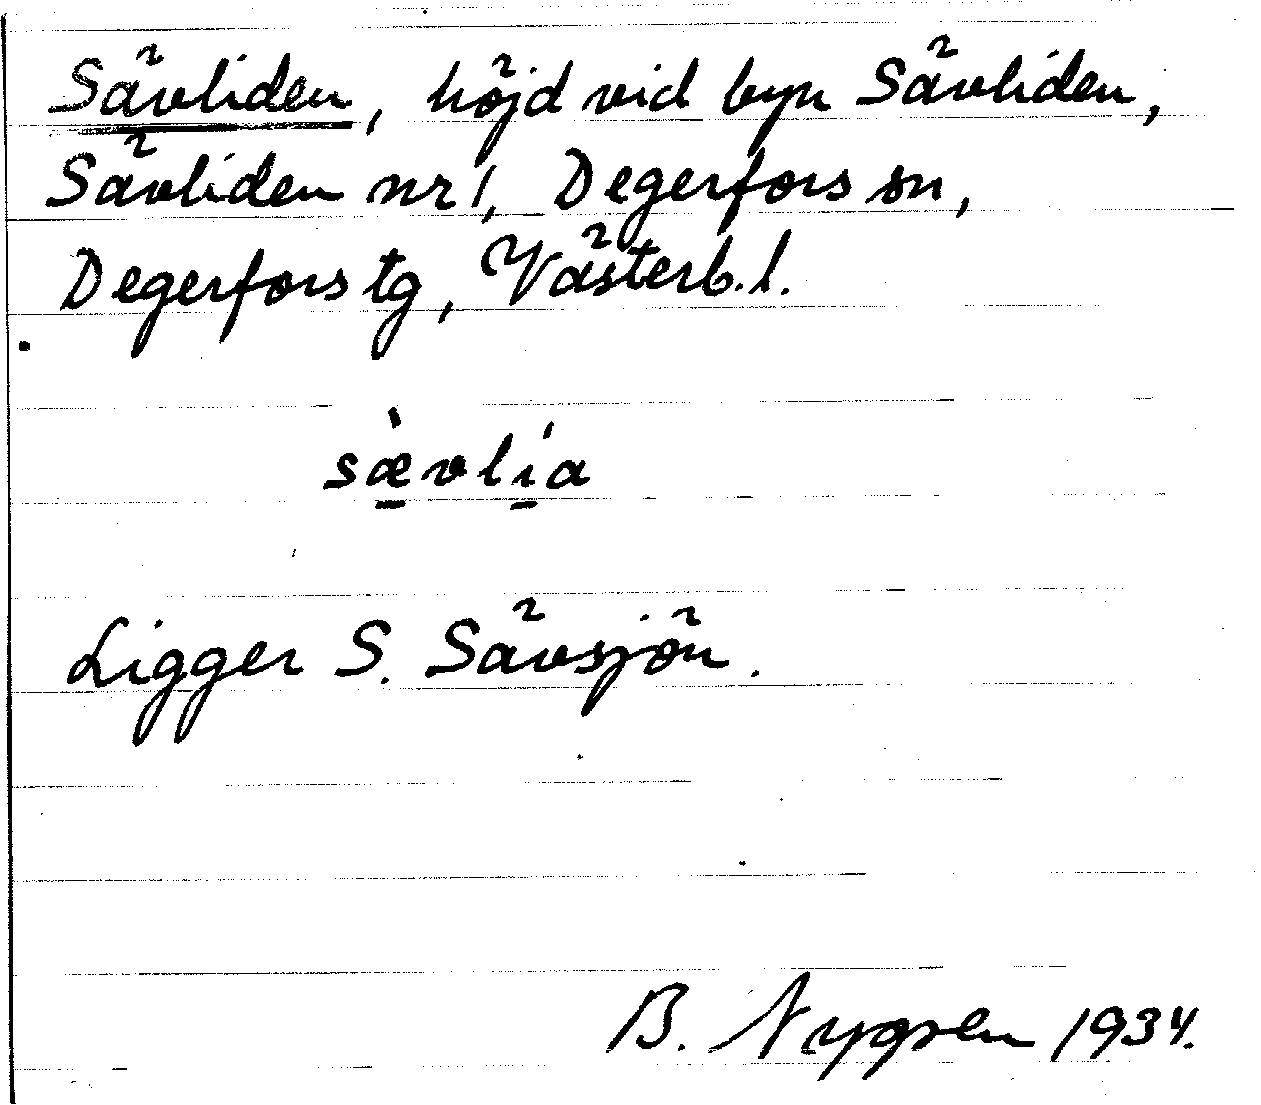 Sävliden, höjd vid byn Sävliden,
Sävliden nr 1, Degerfors sn,
Degerfors tg, Västerb. l.
sæ̀vlía
Ligger S. Sävsjön.
B. Nygren 1934.